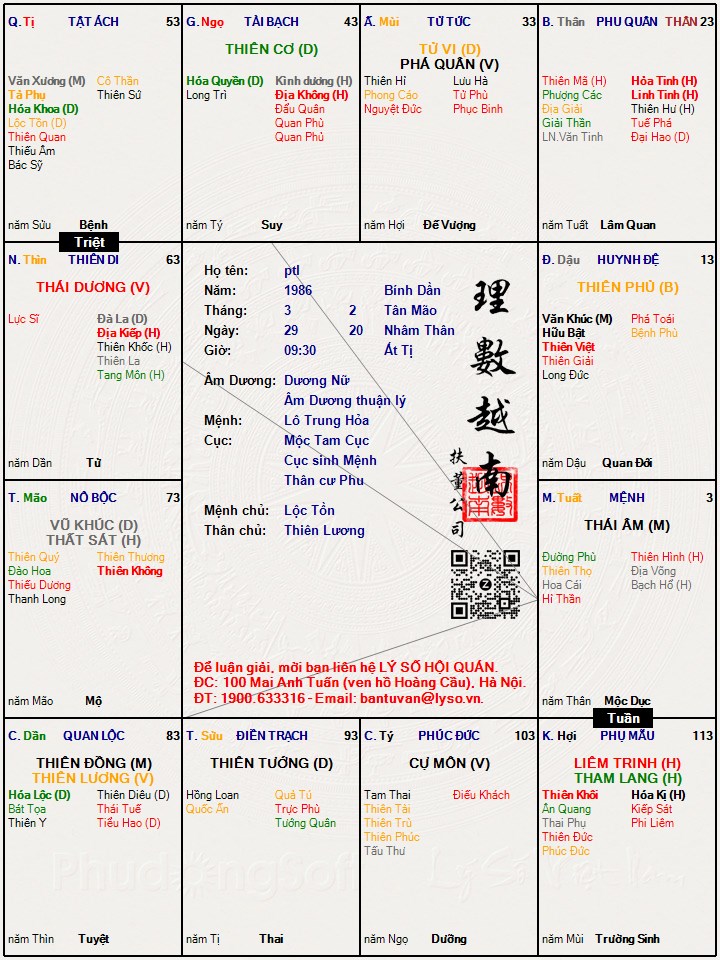 Q. Tị TẬT ÁCH 53
Văn Xương (M) Cô Thần
Tả Phụ Thiên Sứ
Hóa Khoa (D)
Lộc Tồn (D)
Thiên Quan
Thiếu Âm
Bác Sỹ
năm Sửu Bệnh
G. Ngọ TÀI BẠCH 43
THIÊN CƠ (D)
Hóa Quyền (D) Kình dương (H)
Long Trì Địa Không (H)
Đẩu Quân
Quan Phủ
Quan Phù
năm Tý Suy
Ấ. Mùi TỬ TỨC 33
TỬ VI (D)
PHÁ QUÂN (V)
Thiên Hỉ Lưu Hà
Phong Cáo Tử Phù
Nguyệt Đức Phục Binh
năm Hợi Đế Vượng
B. Thân PHU QUÂN THÂN 23
Thiên Mã (H) Hỏa Tinh (H)
Phượng Các Linh Tinh (H)
Địa Giải Thiên Hư (H)
Giải Thần Tuế Phá
LN.Văn Tinh Đại Hao (D)
năm Tuất Lâm Quan
Triệt
N. Thìn THIÊN DI 63
THÁI DƯƠNG (V)
Lực Sĩ Đà La (D)
Địa Kiếp (H)
Thiên Khốc (H)
Thiên La
Tang Môn (H)
năm Dần Tử
Họ tên: ptl
Năm: 1986 Bính Dần
Tháng: 3 2 Tân Mão
Ngày: 29 20 Nhâm Thân
Giờ: 09:30 Ất Tị
Âm Dương: Dương Nữ
Âm Dương thuận lý
Mệnh: Lô Trung Hỏa
Cục: Mộc Tam Cục
Cục sinh Mệnh
Thân cư Phu
Mệnh chủ: Lộc Tồn
Thân chủ: Thiên Lương
理數越南
扶董公司
Để luận giải, mời bạn liên hệ LÝ SỐ HỘI QUÁN.
ĐC: 100 Mai Anh Tuấn (ven hồ Hoàng Cầu), Hà Nội.
ĐT: 1900.633316 - Email: bantuvan@lyso.vn.
Đ. Dậu HUYNH ĐỆ 13
THIÊN PHỦ (B)
Văn Khúc (M) Phá Toái
Hữu Bật Bệnh Phù
Thiên Việt
Thiên Giải
Long Đức
năm Dậu Quan Đới
T. Mão NÔ BỘC 73
VŨ KHÚC (D)
THẤT SÁT (H)
Thiên Quý Thiên Thương
Đào Hoa Thiên Không
Thiếu Dương
Thanh Long
năm Mão Mộ
M. Tuất MỆNH 3
THÁI ÂM (M)
Đường Phù Thiên Hình (H)
Thiên Thọ Địa Võng
Hoa Cái Bạch Hổ (H)
Hỉ Thần
năm Thân Mộc Dục
Tuần
C. Dần QUAN LỘC 83
THIÊN ĐỒNG (M)
THIÊN LƯƠNG (V)
Hóa Lộc (D) Thiên Diêu (D)
Bát Tọa Thái Tuế
Thiên Y Tiểu Hao (D)
năm Thìn Tuyệt
T. Sửu ĐIỀN TRẠCH 93
THIÊN TƯỚNG (D)
Hồng Loan Quả Tú
Quốc Ấn Trực Phù
Tướng Quân
năm Tị Thai
C. Tý PHÚC ĐỨC 103
CỰ MÔN (V)
Tam Thai Điếu Khách
Thiên Tài
Thiên Trù
Thiên Phúc
Tấu Thư
năm Ngọ Dưỡng
K. Hợi PHỤ MẪU 113
LIÊM TRINH (H)
THAM LANG (H)
Thiên Khôi Hóa Kị (H)
Ân Quang Kiếp Sát
Thai Phụ Phi Liêm
Thiên Đức
Phúc Đức
năm Mùi Trường Sinh